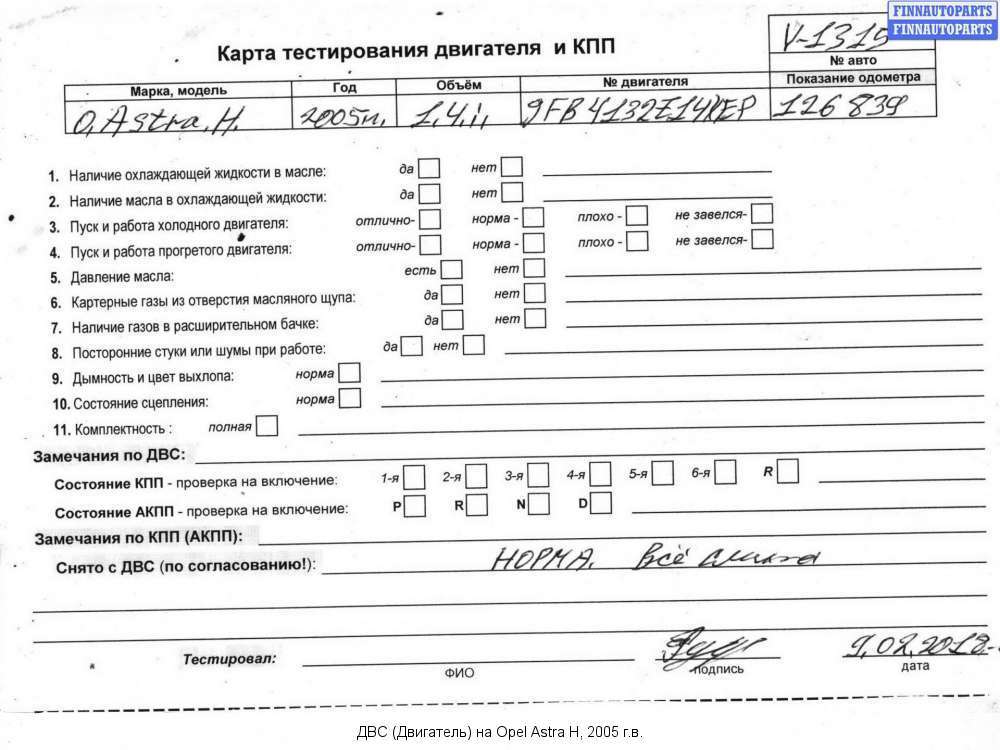 FINNAUTOPARTS
FINNAUTOPARTS
V-1315
Карта тестирования двигателя и КПП
№ авто
Марка, модель Год Объём № двигателя Показание одометра
O. Astra. H. 2005г. 1.4.i. 9FB4132Z14XEP 126839
1. Наличие охлаждающей жидкости в масле: да нет
2. Наличие масла в охлаждающей жидкости: да нет
3. Пуск и работа холодного двигателя: отлично- норма - плохо - не завелся-
4. Пуск и работа прогретого двигателя: отлично- норма - плохо - не завелся-
5. Давление масла: есть нет
6. Картерные газы из отверстия масляного щупа: да нет
7. Наличие газов в расширительном бачке: да нет
8. Посторонние стуки или шумы при работе: да нет
9. Дымность и цвет выхлопа: норма
10. Состояние сцепления: норма
11. Комплектность : полная
Замечания по ДВС:
Состояние КПП - проверка на включение: 1-я 2-я 3-я 4-я 5-я 6-я R
Состояние АКПП - проверка на включение: P R N D
Замечания по КПП (АКПП):
Снято с ДВС (по согласованию!): НОРМА. Всё
Тестировал: 9.02.2018.
ФИО подпись дата
ДВС (Двигатель) на Opel Astra H, 2005 г.в.